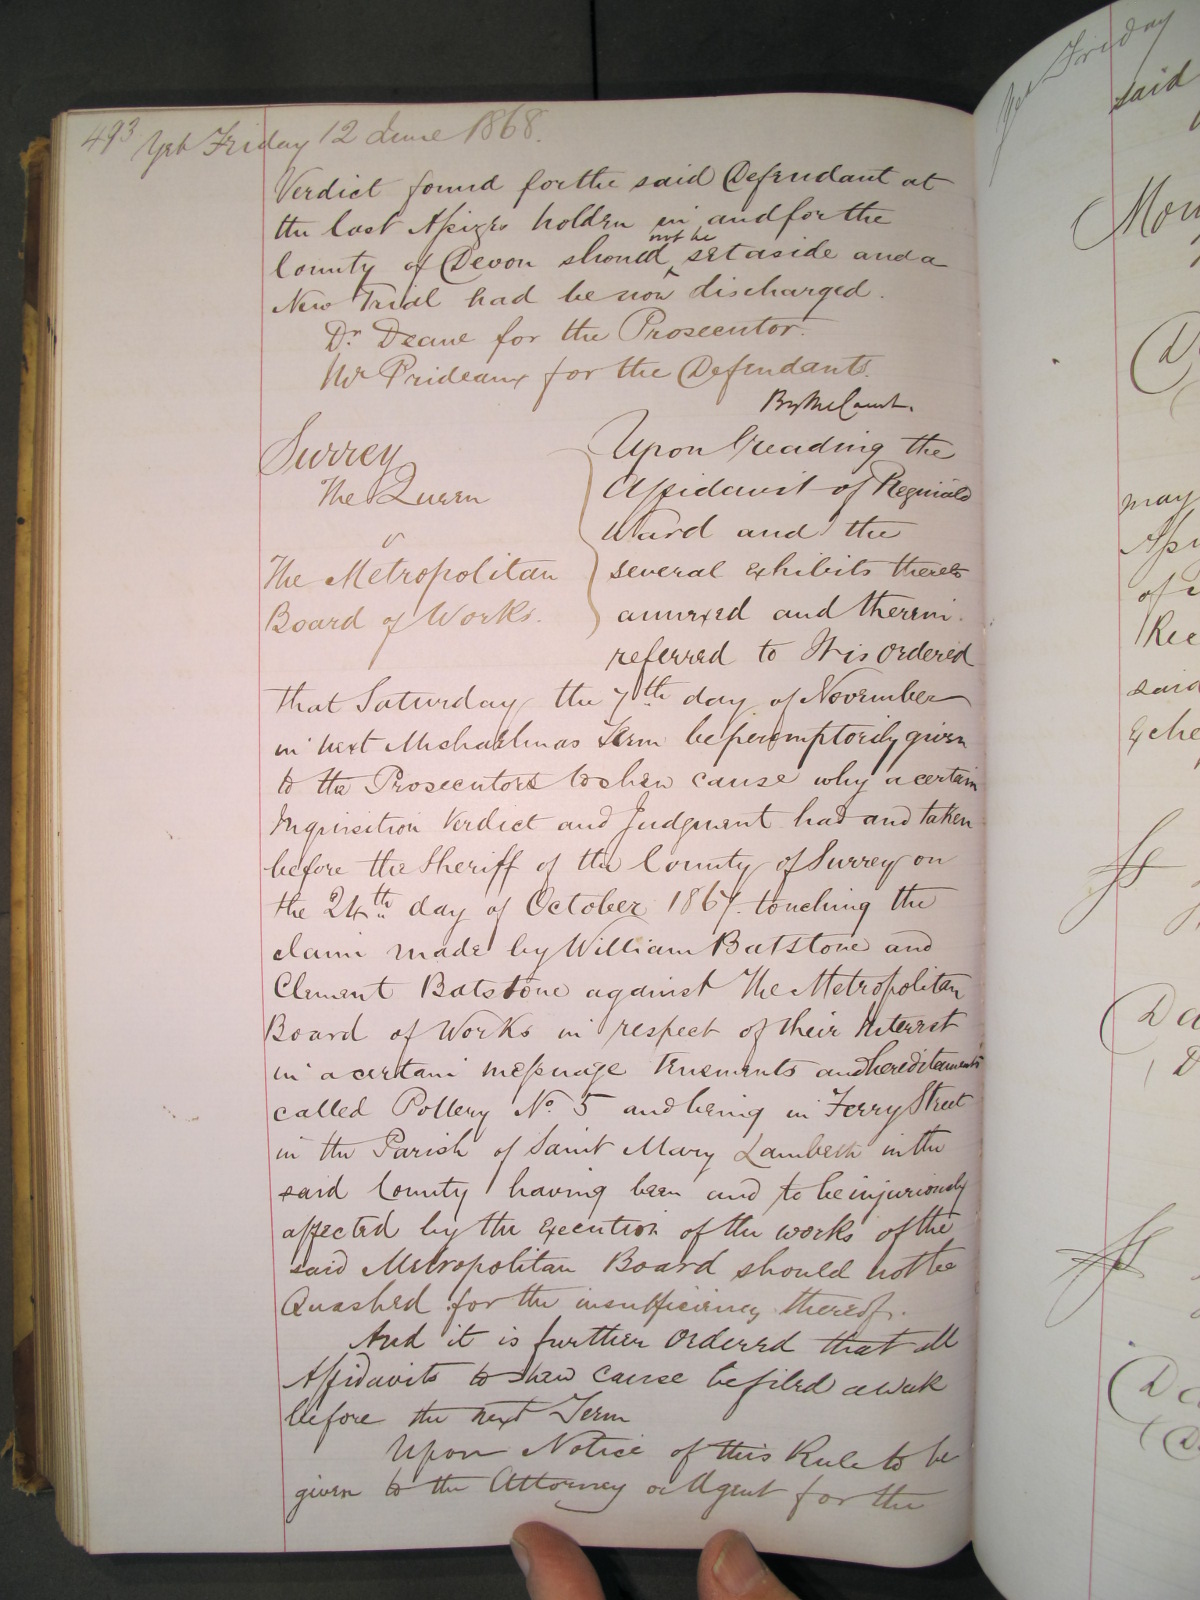 493 Yet Friday 12 June 1868.
Verdict found for the said Defendant at
the last Assizes holden in and for the
County of Devon should not be set aside and a
New Trial had be now discharged.
Dr. Deane for the Prosecutor.
Mr Prideaux for the Defendants.
By the Court.
Surrey
The Queen
v
The Metropolitan
Board of Works.
Upon reading the
Affidavit of Reginald
Ward and the
several exhibits thereto
annexed and therein
referred to It is Ordered
that Saturday the 7th day of November
in next Michaelmas Term be peremptorily given
to the Prosecutors to shew cause why a certain
Inquisition Verdict and Judgment had and taken
before the Sheriff of the County of Surrey on
the 24th day of October 1867. touching the
claim made by William Batstone and
Clement Batstone against The Metropolitan
Board of Works in respect of their Interest
in a certain messuage tenements and hereditaments
called Pottery No. 5 and being in Ferry Street
in the Parish of Saint Mary Lambeth in the
said County having been and to be injuriously
affected by the execution of the works of the
said Metropolitan Board should not be
Quashed for the insufficiency thereof.
And it is further Ordered that all
Affidavits to shew cause be filed a week
before the next Term
Upon Notice of this Rule to be
given to the Attorney or Agent for the
Yet Friday
said
may
of
said